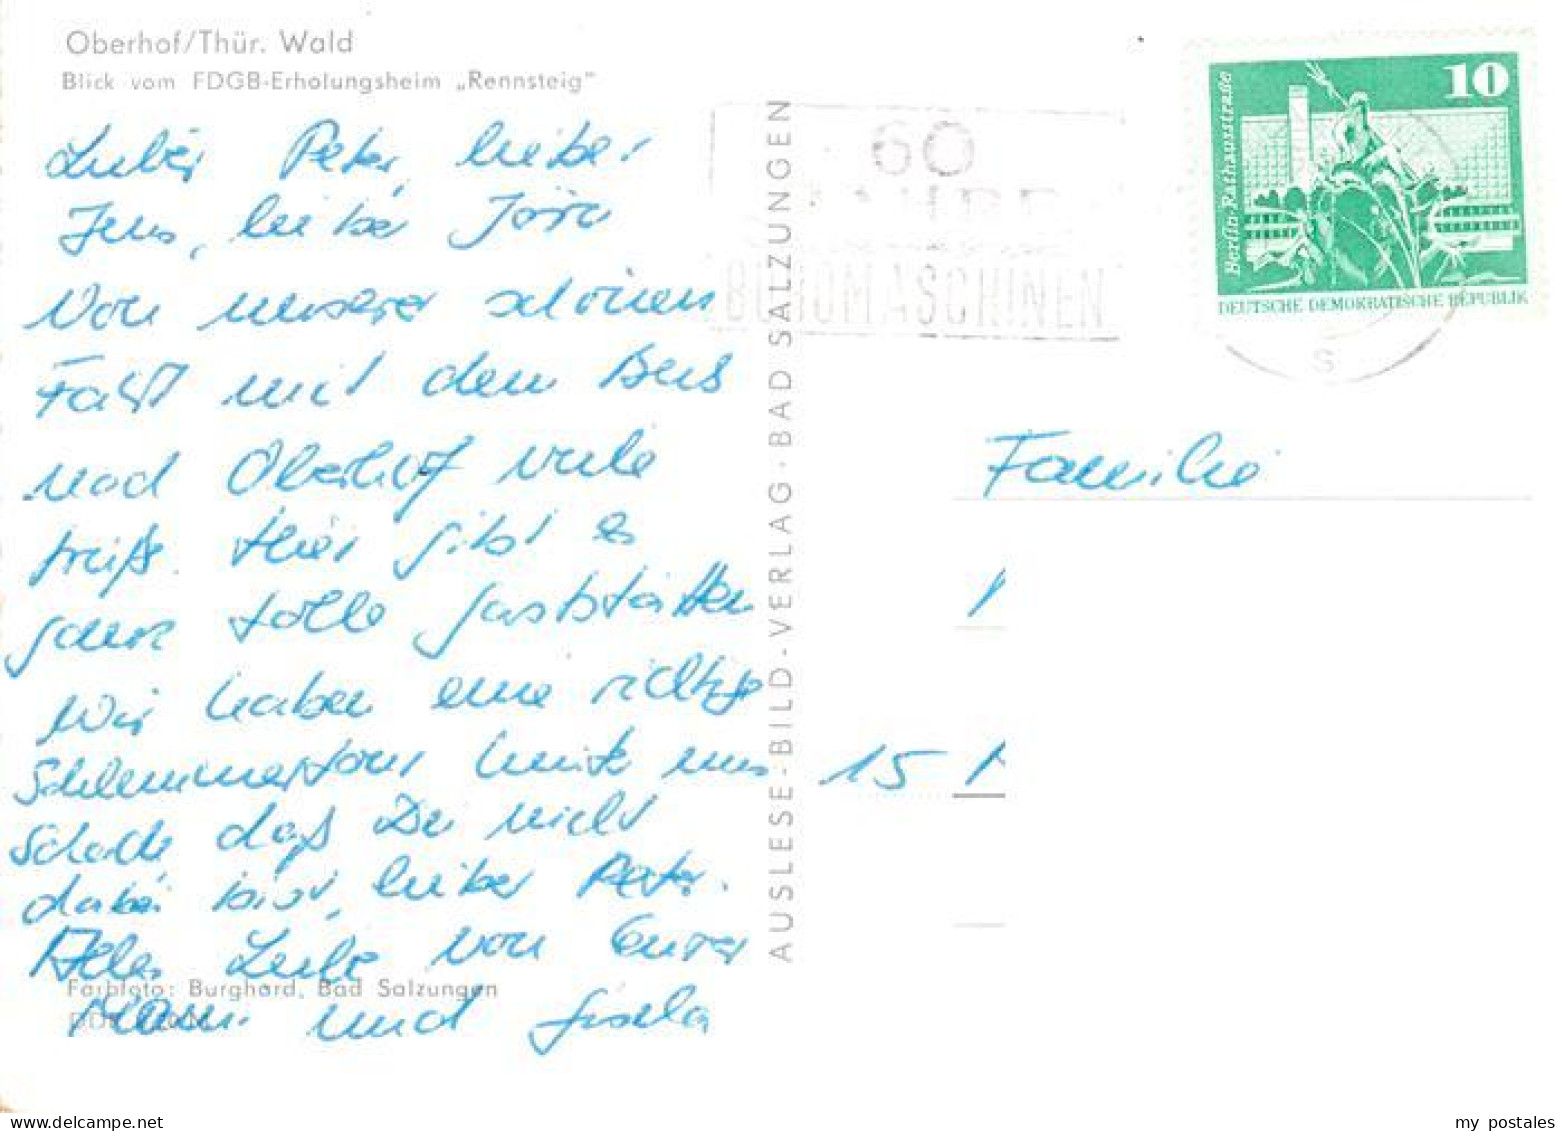 Oberhof/Thür. Wald
Blick vom FDGB-Erholungsheim „Rennsteig"
Lieber Peter, lieber
Jens, lieber Jörg
Von unserer schönen
Fahrt mit dem Bus
nach Oberhof viele
Grüße. Hier gibt es
ganz tolle Gaststätten
Wir haben eine richtige
Schlemmertour hinter uns
Schade daß Du nicht
dabei bist, lieber Peter.
Alles Liebe von Eurer
Mami und Gisela
Farbfoto: Burghard, Bad Salzungen
AUSLESE-BILD-VERLAG·BAD SALZUNGEN
60
JAHRE
BÜROMASCHINEN
10
Berlin, Rathausstraße
DEUTSCHE DEMOKRATISCHE REPUBLIK
S
Familie
15
my postales